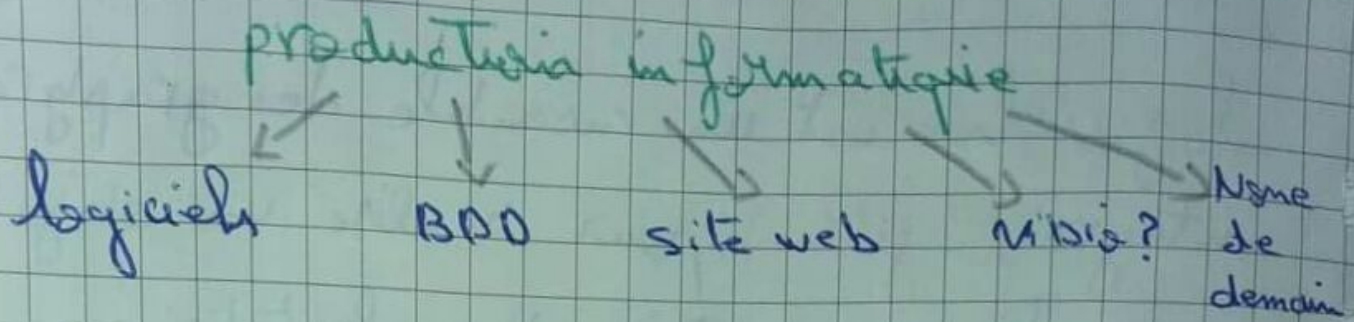 production informatique
logiciels BDD site web vidéo? Nome
de
demain